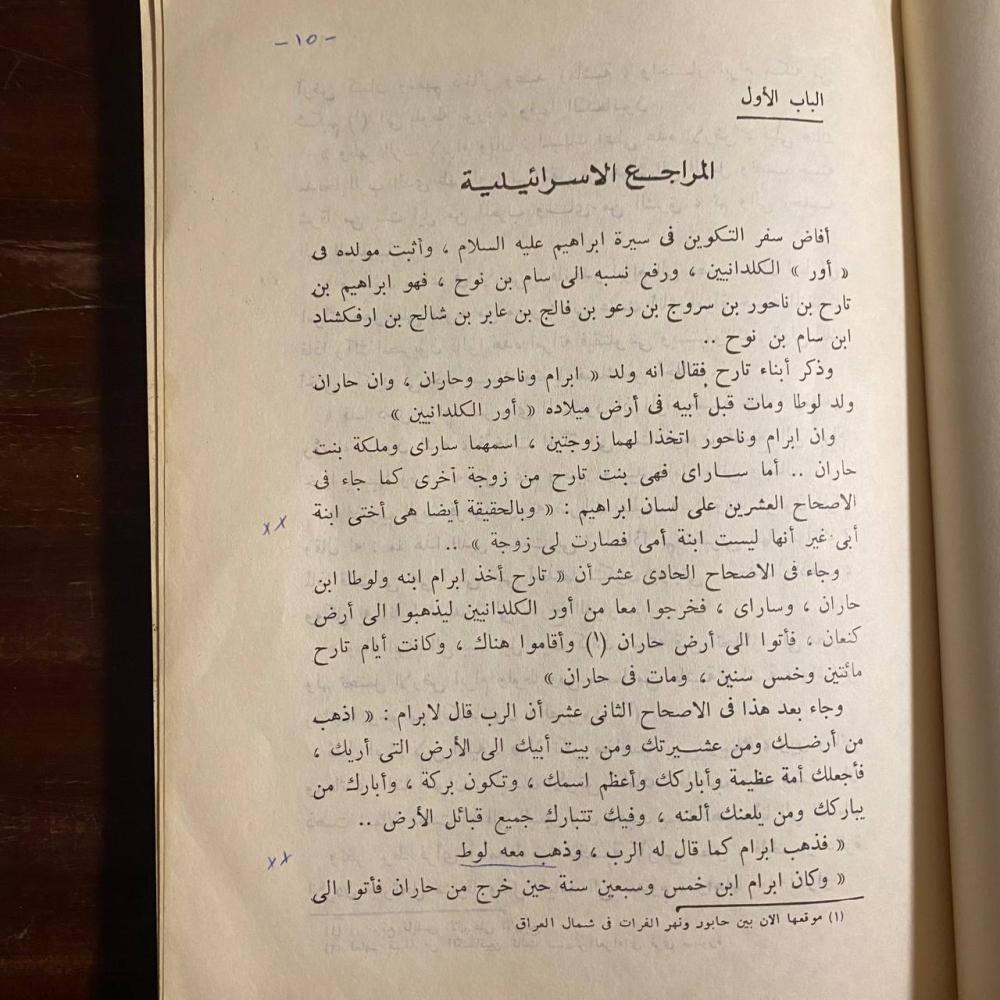 - ١٥ -
الباب الأول
المراجع الاسرائيلية
أفاض سفر التكوين فى سيرة ابراهيم عليه السلام ، وأثبت مولده فى
« أور » الكلدانيين ، ورفع نسبه الى سام بن نوح ، فهو ابراهيم بن
تارح بن ناحور بن سروج بن رعو بن فالج بن عابر بن شالح بن ارفكشاد
ابن سام بن نوح ..
وذكر أبناء تارح فقال انه ولد « ابرام وناحور وحاران ، وان حاران
ولد لوطا ومات قبل أبيه فى أرض ميلاده « أور الكلدانيين »
وان ابرام وناحور اتخذا لهما زوجتين ، اسمهما ساراى وملكة بنت
حاران .. أما ساراى فهى بنت تارح من زوجة أخرى كما جاء فى
الاصحاح العشرين على لسان ابراهيم : « وبالحقيقة أيضا هى أختى ابنة
xx
أبى غير أنها ليست ابنة أمى فصارت لى زوجة » ..
وجاء فى الاصحاح الحادى عشر أن « تارح أخذ ابرام ابنه ولوطا ابن
حاران ، وساراى ، فخرجوا معا من أور الكلدانيين ليذهبوا الى أرض
كنعان ، فأتوا الى أرض حاران (١) وأقاموا هناك ، وكانت أيام تارح
مائتين وخمس سنين ، ومات فى حاران »
وجاء بعد هذا فى الاصحاح الثانى عشر أن الرب قال لابرام : « اذهب
من أرضك ومن عشيرتك ومن بيت أبيك الى الأرض التى أريك ،
فأجعلك أمة عظيمة وأباركك وأعظم اسمك ، وتكون بركة ، وأبارك من
يباركك ومن يلعنك ألعنه ، وفيك تتبارك جميع قبائل الأرض ..
« فذهب ابرام كما قال له الرب ، وذهب معه لوط
xx
« وكان ابرام ابن خمس وسبعين سنة حين خرج من حاران فأتوا الى
(١) موقعها الان بين حابور ونهر الفرات فى شمال العراق